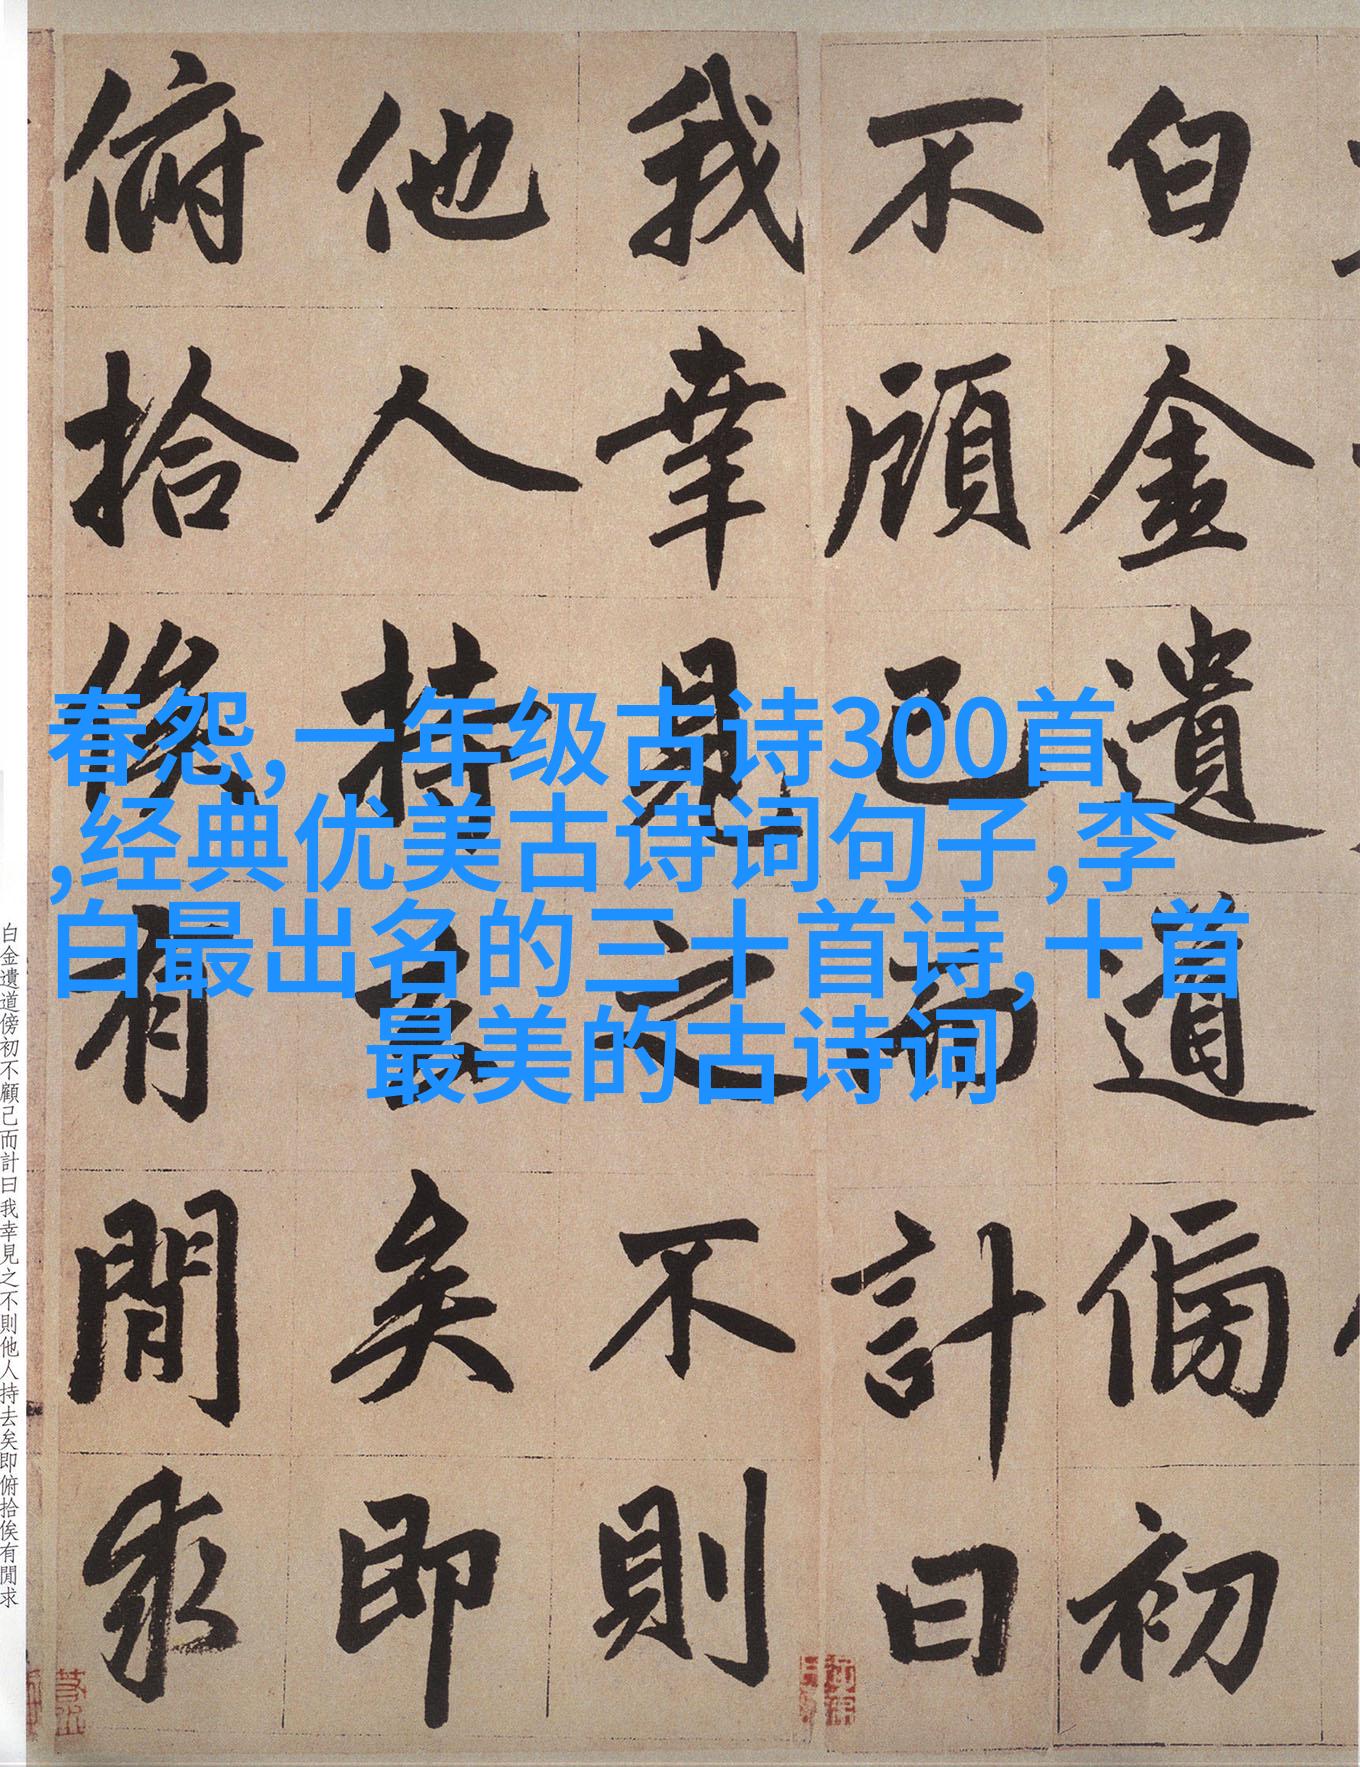 白金遺道傍初
不顧己而計曰
我幸見之不則
他人持去矣即
俯拾俟有閒求
春怨,一年级古诗300首
,经典优美古诗词句子,李
白最出名的三十首诗,十首
最美的古诗词
白金遺道傍初不顧己而計曰我幸見之不則他人持去矣即俯拾俟有閒求